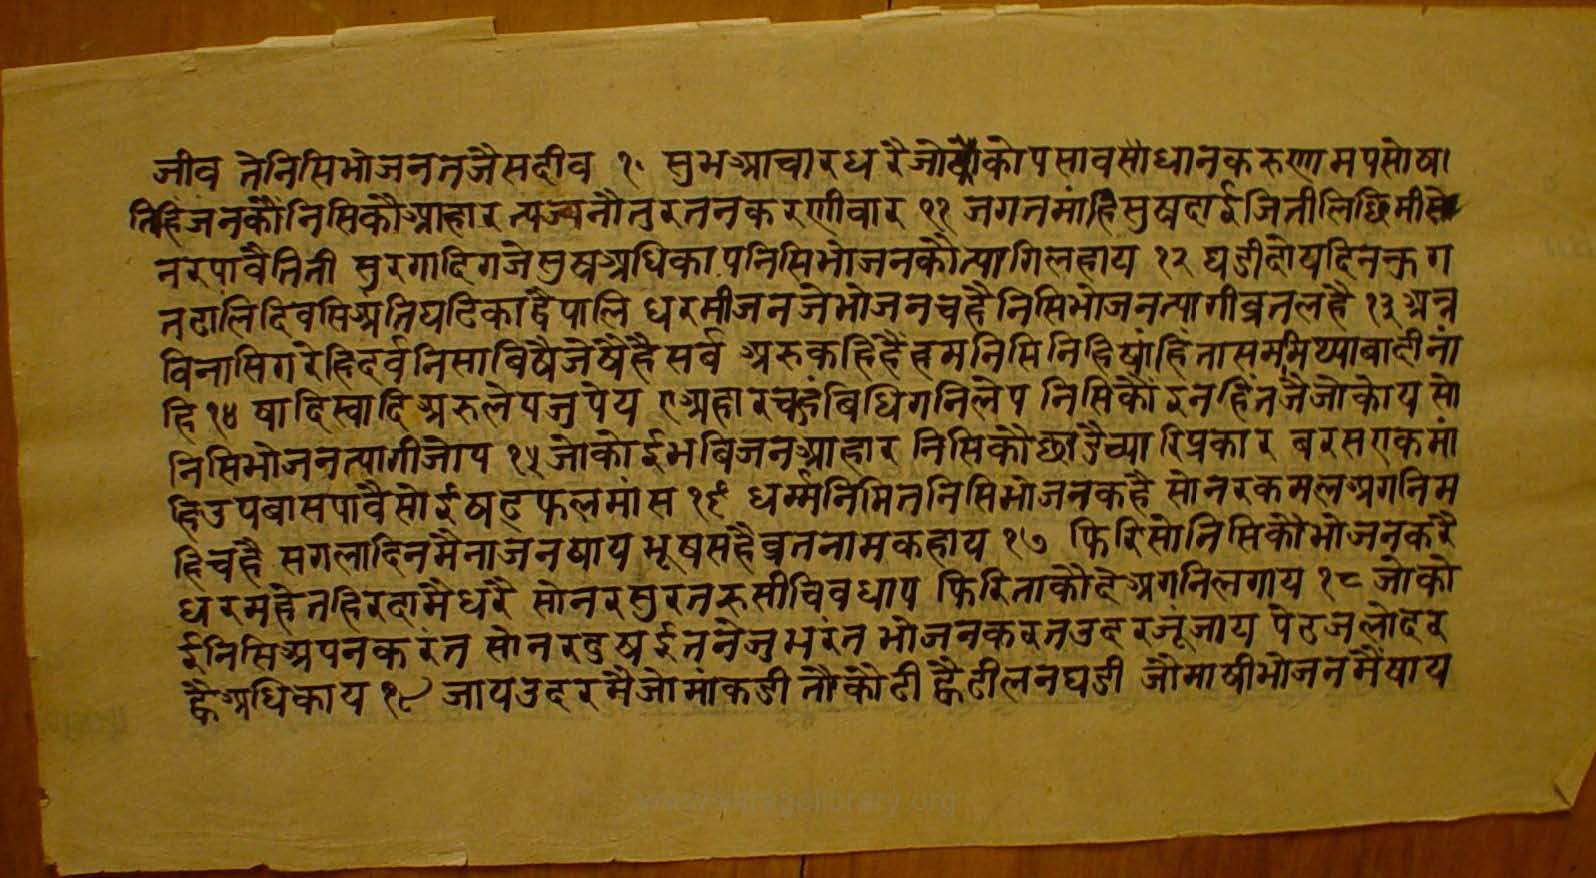 जीव तेनिसिभोजनतजैसदीव १॰ सुभआचारधरैजो कोपसावसौधानकरुणामपसोषा
तिहिजनकौंनिसिकौआहार त्यज्यनौतुरतनकरणीवार ११ जगतमांहिसुषदाईजितीलिछिमीसो
नरपावैतिती सुरगादिगजेसुषअधिकाप निसिभोजनकौत्यागिलहाय १२ घडीदोयदिनऊग
तटालिदिवसिअतिघटिकाद्वैपालि धरमीजनजेभोजनचहै निसिभोजनत्यागीव्रतलहै १३ अन्न
विनासिगरेहिदर्वनिसाविषैजेषैहैसर्व अरुकहिहैहमनिसिनिहिषांहिं तासममिथ्याबादीनां
हि १४ षादिस्वादिअरुलेपजुपेय एअहारचहुंबिधिगनिलेप निसिकौंरनहिंतजैजोकोय सो
निसिभोजनत्यागीजोप १५ जोकोईभविजनआहार निसिकौछांडैच्यारिप्रकार बरसएकमां
हिउपबासपावैसोईषटफलमांस १६ धर्म्मनिमितनिसिभोजनकहै सोनरकमलअगनिम
हिचहै सगलादिनमैनाजनषाय भूषसहैव्रतनामकहाय १७ फिरिसोनिसिकौभोजनकरै
धरमहेतहिरदामैधरै सोनरसुरतरुसीचिवधाप फिरिताकौदेअगनिलगाय १८ जोको
ईनिसिअपनकरत सोनरदुषईतनेजुभरंत भोजनकरतउदरजूंजाय पेटजलोदर
ह्वैअधिकाय १९ जायउदरमैजोमांकडी तौकोटी ह्वैटीलनघडी जौमाषीभोजनमैंयाय